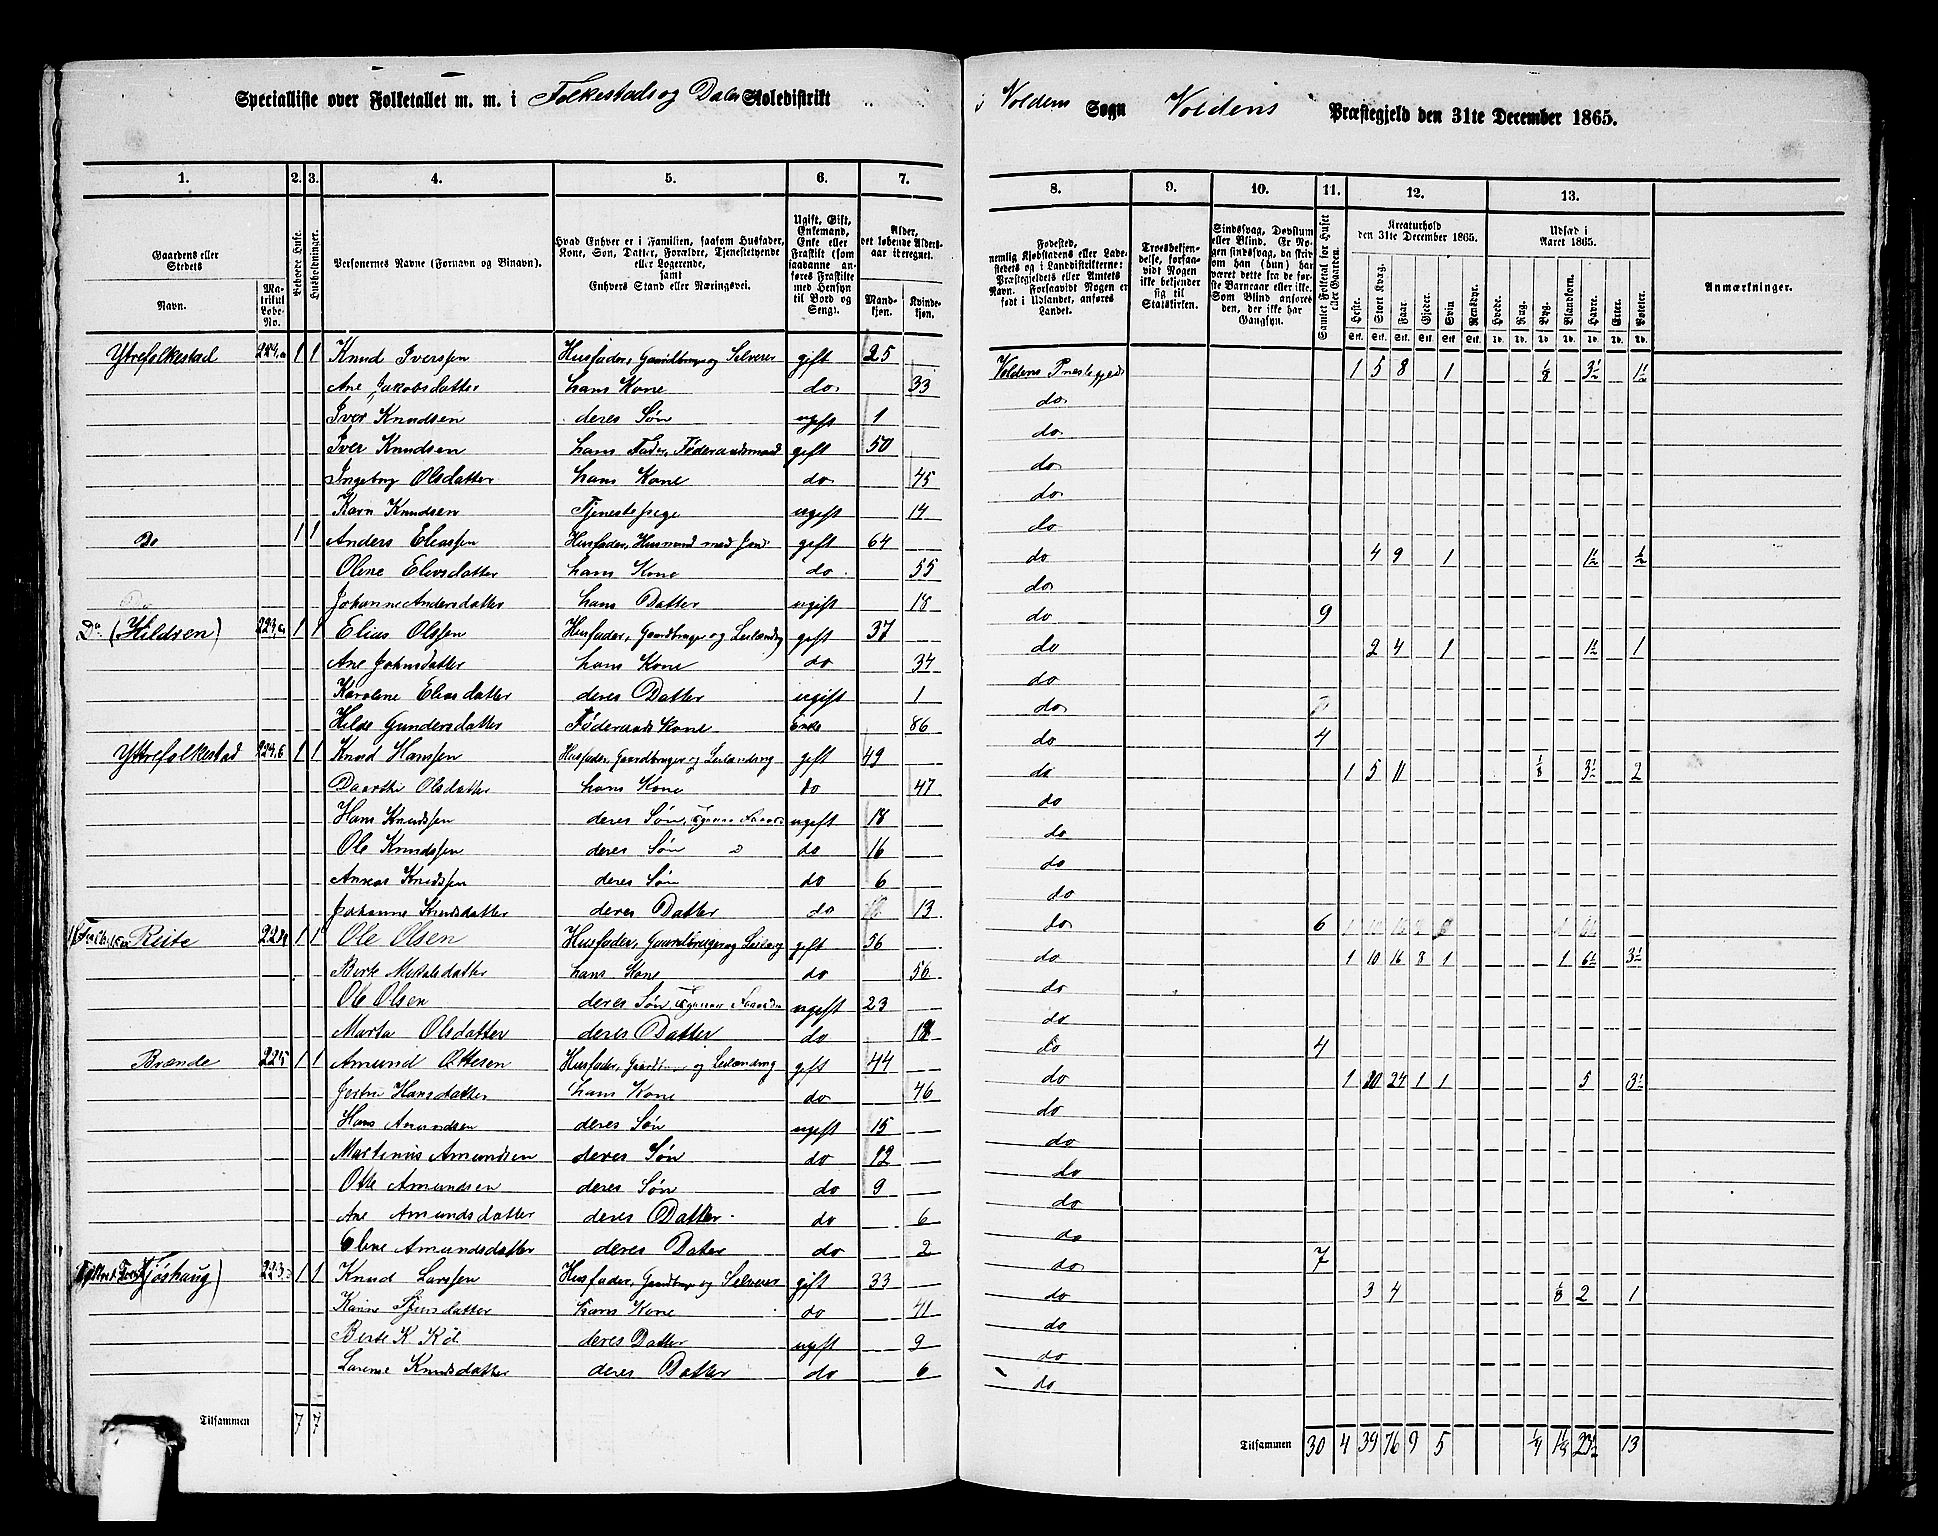 Specialliste over Folketallet m. m. i Folkestads og Dales Skoledistrikt i Voldens Sogn Voldens Præstegjeld den 31te December 1865.
1. 2. 3. 4. 5. 6. 7. 8. 9. 10. 11. 12. 13.
Gaardens eller Stedets Navn. Matrikul Løbe-No. Beboede Huse. Husholdninger. Personernes Navne (Fornavn og Binavn). Hvad Enhver er i Familien, saasom Husfader, Kone, Søn, Datter, Forældre, Tjenestetyende eller Logerende, samt Enhvers Stand eller Næringsvei. Ugift, Gift, Enkemand, Enke eller Fraskilt (som saadanne anføres Fraskilte med Hensyn til Bord og Seng). Alder, det løbende Aldersaar iberegnet. Mandkjøn. Kvindekjøn.
Fødested, nemlig Kjøbstadens eller Ladestedets og i Landdistrikterne: Præstegjeldets eller Amtets Navn. Forsaavidt Nogen er født i Udlandet, anføres Landet. Troesbekjendelse, forsaavidt Nogen ikke bekjender sig til Statskirken. Sindssvag, Døvstum eller Blind. Er Nogen sindssvag, da skrives om han (hun) har været dette fra de første Barneaar eller ikke. Som Blind anføres den, der ikke har Gangsyn. Samlet Folketal for Huset eller Gaarden. Kreaturhold den 31te December 1865. Heste. Stort Kvæg. Faar. Gjeder. Svin. Rensdyr. Udsæd i Aaret 1865. Hvede. Rug. Byg. Blandkorn. Havre. Erter. Poteter. Anmærkninger.
Ytrefolkestad 224a 1 1 Knud Iverssen Husfader, Gaardbruger og Selveier gift 25 Voldens Præstegjeld 1 5 8 1 1/8 3½ 1½
Ane Jakobsdatter hans Kone do 33 do
Iver Knudsen deres Søn ugift 1 do
Iver Knudsen hans Fader, Føderaadsmand gift 50 do
Ingebrg Olsdatter hans Kone do 45 do
Karn Knudsen Tjenestepige ugift 14 do
Do 1 1 Anders Eliassen Husfader, Husmand med Jord gift 64 do 4 9 1 1½ ½
Oline Eliasdatter hans Kone do 55 do
Johanne Andersdatter hans Datter ugift 18 do 9
Do (Kildren) 223a 1 1 Elias Olssen Husfader, Gaardbruger og Leilænding gift 37 do 2 4 1 1½ 1
Ane Johnsdatter hans Kone do 34 do
Karolene Eliasdatter deres Datter ugift 1 do
Hilde Gundersdatter Føderaads Kone Enke 86 do 4
Yttrefolkestad 224b 1 1 Knud Hanssen Husfader, Gaardbruger og Leilænding gift 49 do 1 5 11 1/8 3½ 2
Daarthe Olsdatter hans Kone do 47 do
Hans Knudssen deres Søn, ugift 18 do
Ole Knudssen deres Søn do 16 do
Anders Knudssen deres Søn do 6 do
Johanne Knudsdatter deres Datter do 13 do 6
Reite 1 1 Ole Olsen Husfader, Gaardbruger og Leilæng gift 56 do 1 10 16 8 1 1 6½ 3½
Berte datter hans Kone do 56 do
Ole Olsen deres Søn ugift 23 do
Marta Olsdatter deres Datter do 18 do 4
Brænde 225 1 1 Amund Ottesen Husfader, Gaardbruger og Leilænding gift 44 do 1 20 24 1 1 5 3½
Hansdatter hans Kone do 46 do
Hans Amundsen deres Søn ugift 15 do
Martinus Amundsen deres Søn do 12 do
Otte Amundsen deres Søn do 9 do
Ane Amundsdatter deres Datter do 6 do
Olene Amundsdatter deres Dater do 2 do 7
223 1 1 Knud Larssen Husfader, Gaardbruger og Selveier gift 33 do 3 4 1/8 2 1
Karine datter hans Kone do 41 do
Berte K deres Datter ugift 9 do
Larense Knudsdatter deres Datter do 6 do
Tilsammen 7 7 Tilsammen 30 4 39 76 9 5 ¼ 23½ 13